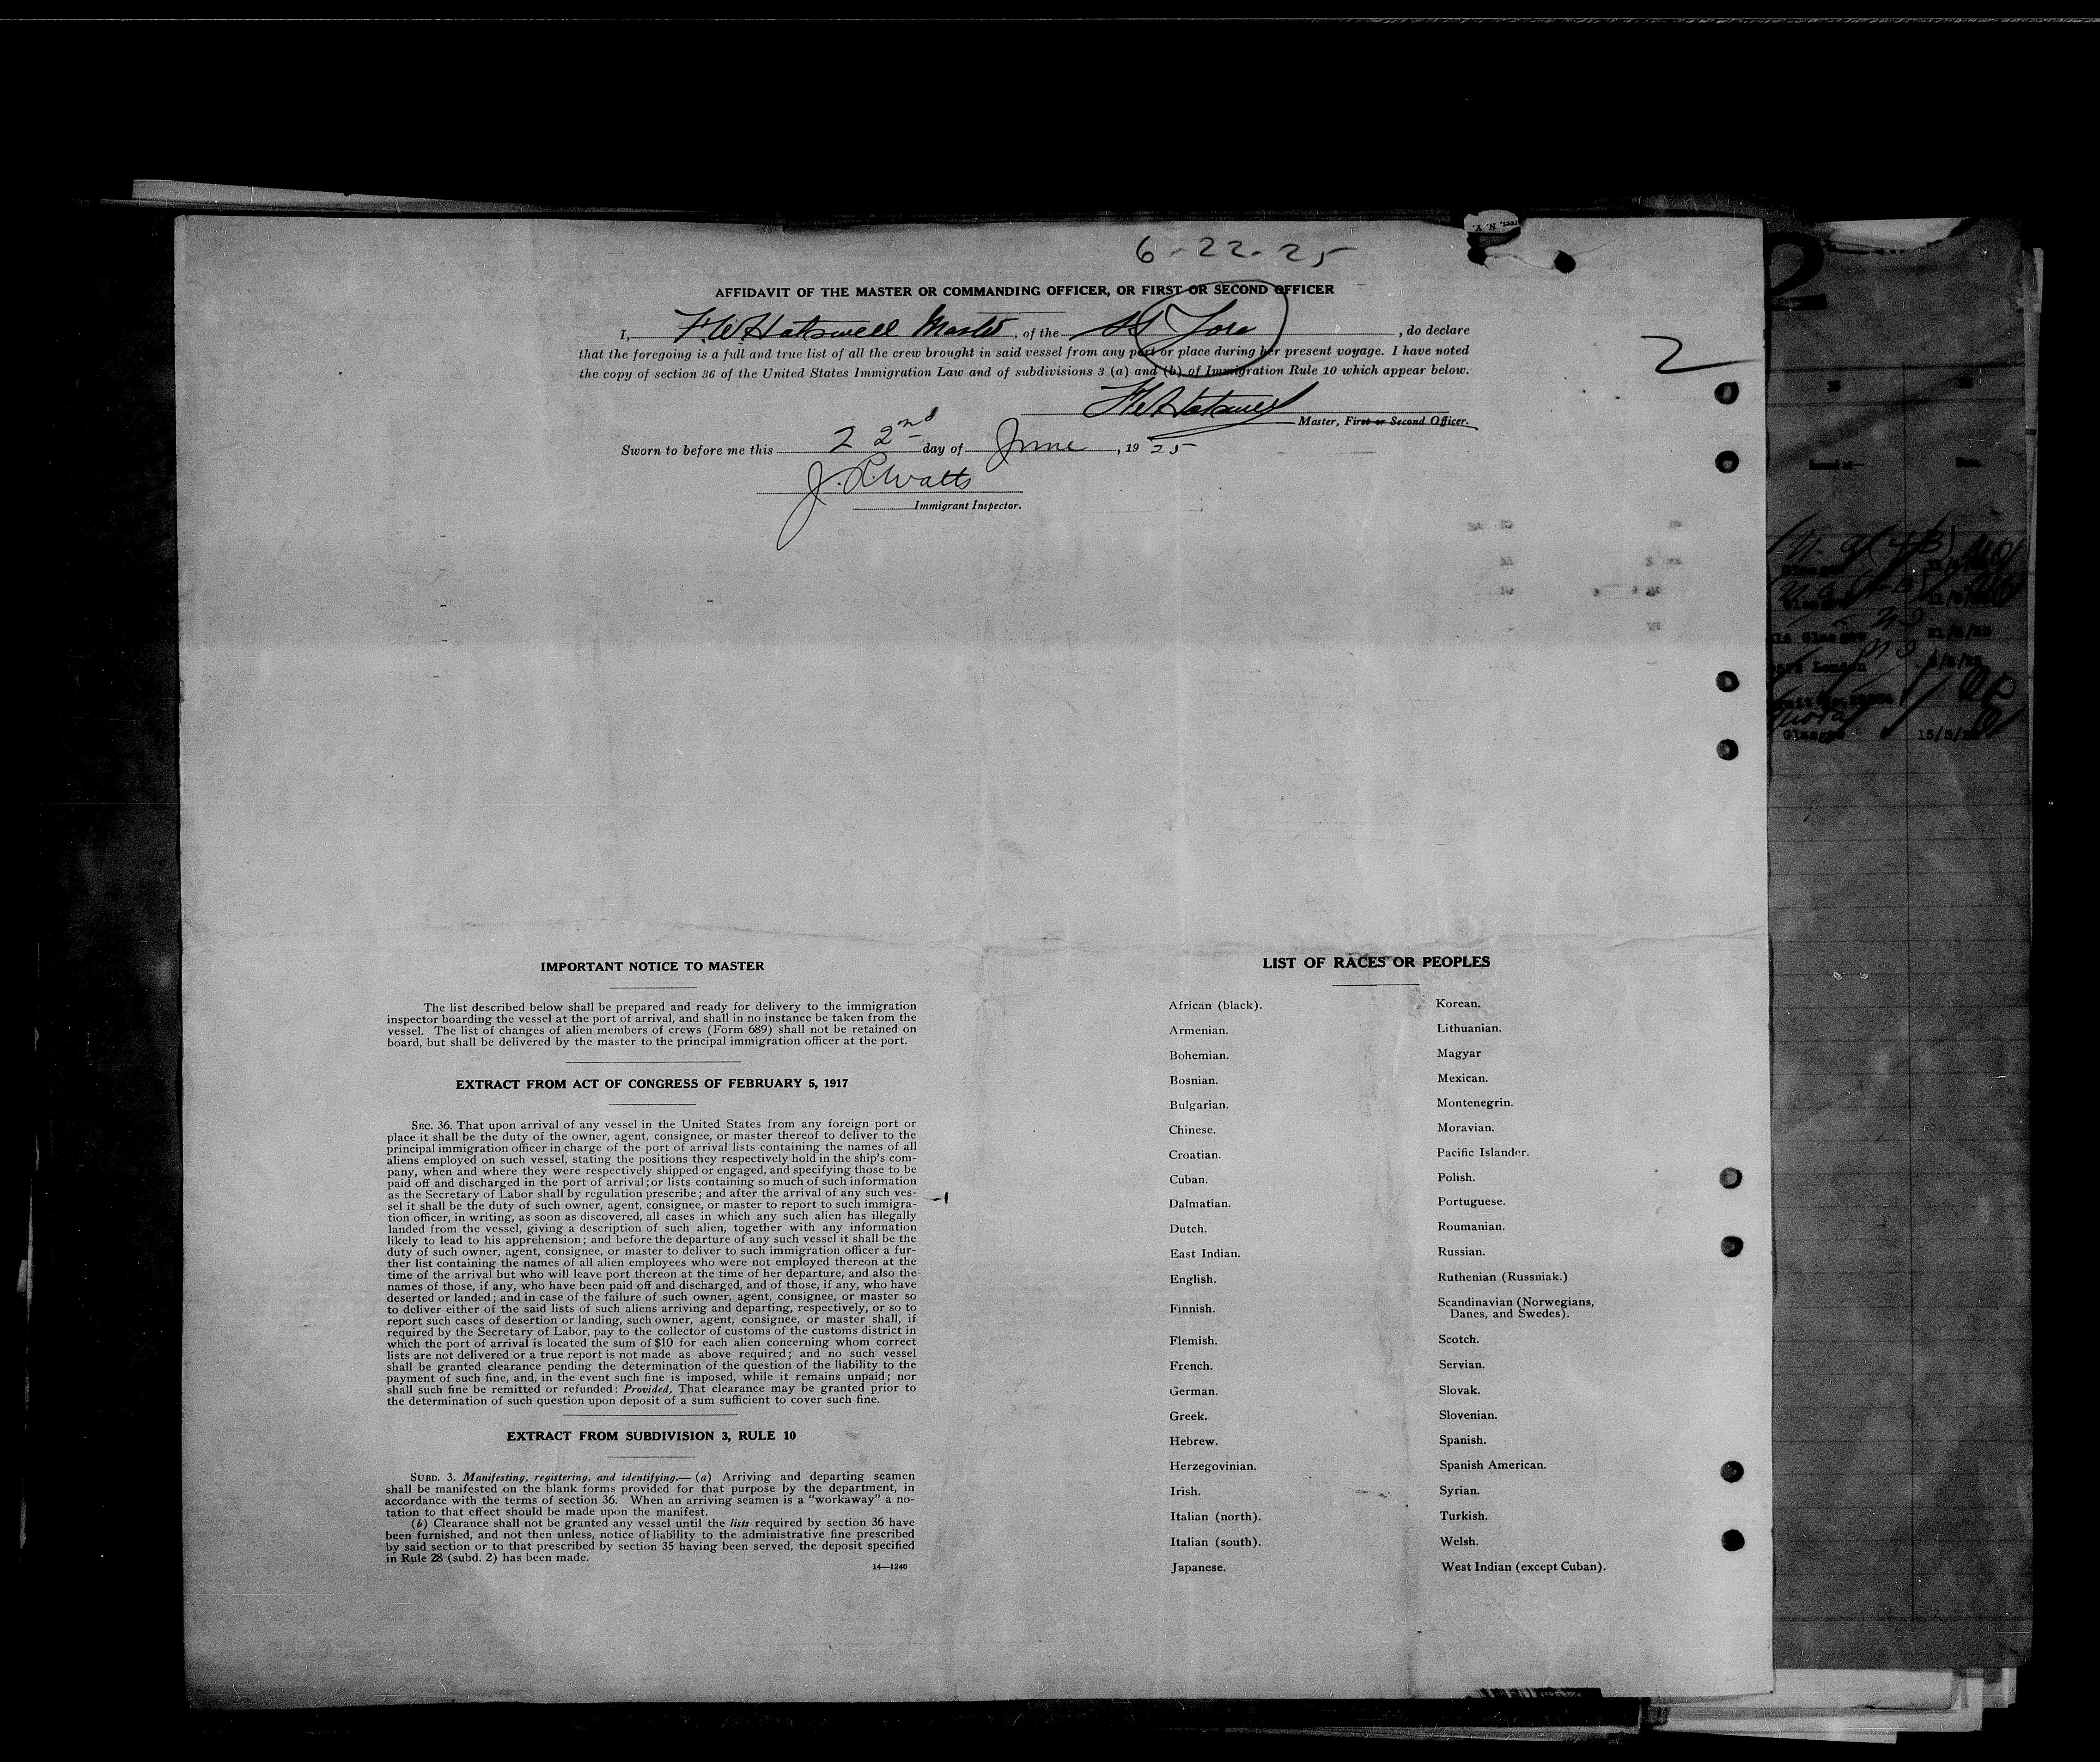 6-22-25
AFFIDAVIT OF THE MASTER OR COMMANDING OFFICER, OR FIRST OR SECOND OFFICER
I, F.W. Hatswell Master, of the SS, do declare
that the foregoing is a full and true list of all the crew brought in said vessel from any port or place during her present voyage. I have noted
the copy of section 36 of the United States Immigration Law and of subdivisions 3 (a) and (b) of Immigration Rule 10 which appear below.
2
Master, First or Second Officer.
Sworn to before me this 22nd day of June, 1925
J. R. Watts
Immigrant Inspector.
IMPORTANT NOTICE TO MASTER
The list described below shall be prepared and ready for delivery to the immigration
inspector boarding the vessel at the port of arrival, and shall in no instance be taken from the
vessel. The list of changes of alien members of crews (Form 689) shall not be retained on
board, but shall be delivered by the master to the principal immigration officer at the port.
EXTRACT FROM ACT OF CONGRESS OF FEBRUARY 5, 1917
SEC. 36. That upon arrival of any vessel in the United States from any foreign port or
place it shall be the duty of the owner, agent, consignee, or master thereof to deliver to the
principal immigration officer in charge of the port of arrival lists containing the names of all
aliens employed on such vessel, stating the positions they respectively hold in the ship's com-
pany, when and where they were respectively shipped or engaged, and specifying those to be
paid off and discharged in the port of arrival; or lists containing so much of such information
as the Secretary of Labor shall by regulation prescribe; and after the arrival of any such ves-
sel it shall be the duty of such owner, agent, consignee, or master to report to such immigra-
tion officer, in writing, as soon as discovered, all cases in which any such alien has illegally
landed from the vessel, giving a description of such alien, together with any information
likely to lead to his apprehension; and before the departure of any such vessel it shall be the
duty of such owner, agent, consignee, or master to deliver to such immigration officer a fur-
ther list containing the names of all alien employees who were not employed thereon at the
time of the arrival but who will leave port thereon at the time of her departure, and also the
names of those, if any, who have been paid off and discharged, and of those, if any, who have
deserted or landed; and in case of the failure of such owner, agent, consignee, or master so
to deliver either of the said lists of such aliens arriving and departing, respectively, or so to
report such cases of desertion or landing, such owner, agent, consignee, or master shall, if
required by the Secretary of Labor, pay to the collector of customs of the customs district in
which the port of arrival is located the sum of $10 for each alien concerning whom correct
lists are not delivered or a true report is not made as above required; and no such vessel
shall be granted clearance pending the determination of the question of the liability to the
payment of such fine, and, in the event such fine is imposed, while it remains unpaid; nor
shall such fine be remitted or refunded: Provided, That clearance may be granted prior to
the determination of such question upon deposit of a sum sufficient to cover such fine.
EXTRACT FROM SUBDIVISION 3, RULE 10
SUBD. 3. Manifesting, registering, and identifying.—(a) Arriving and departing seamen
shall be manifested on the blank forms provided for that purpose by the department, in
accordance with the terms of section 36. When an arriving seamen is a "workaway" a no-
tation to that effect should be made upon the manifest.
(b) Clearance shall not be granted any vessel until the lists required by section 36 have
been furnished, and not then unless, notice of liability to the administrative fine prescribed
by said section or to that prescribed by section 35 having been served, the deposit specified
in Rule 28 (subd. 2) has been made.
14—1240
LIST OF RACES OR PEOPLES
African (black).
Armenian.
Bohemian.
Bosnian.
Bulgarian.
Chinese.
Croatian.
Cuban.
Dalmatian.
Dutch.
East Indian.
English.
Finnish.
Flemish.
French.
German.
Greek.
Hebrew.
Herzegovinian.
Irish.
Italian (north).
Italian (south).
Japanese.
Korean.
Lithuanian.
Magyar
Mexican.
Montenegrin.
Moravian.
Pacific Islander.
Polish.
Portuguese.
Roumanian.
Russian.
Ruthenian (Russniak.)
Scandinavian (Norwegians,
Danes, and Swedes).
Scotch.
Servian.
Slovak.
Slovenian.
Spanish.
Spanish American.
Syrian.
Turkish.
Welsh.
West Indian (except Cuban).
2
Glasgow
London
Glasgow